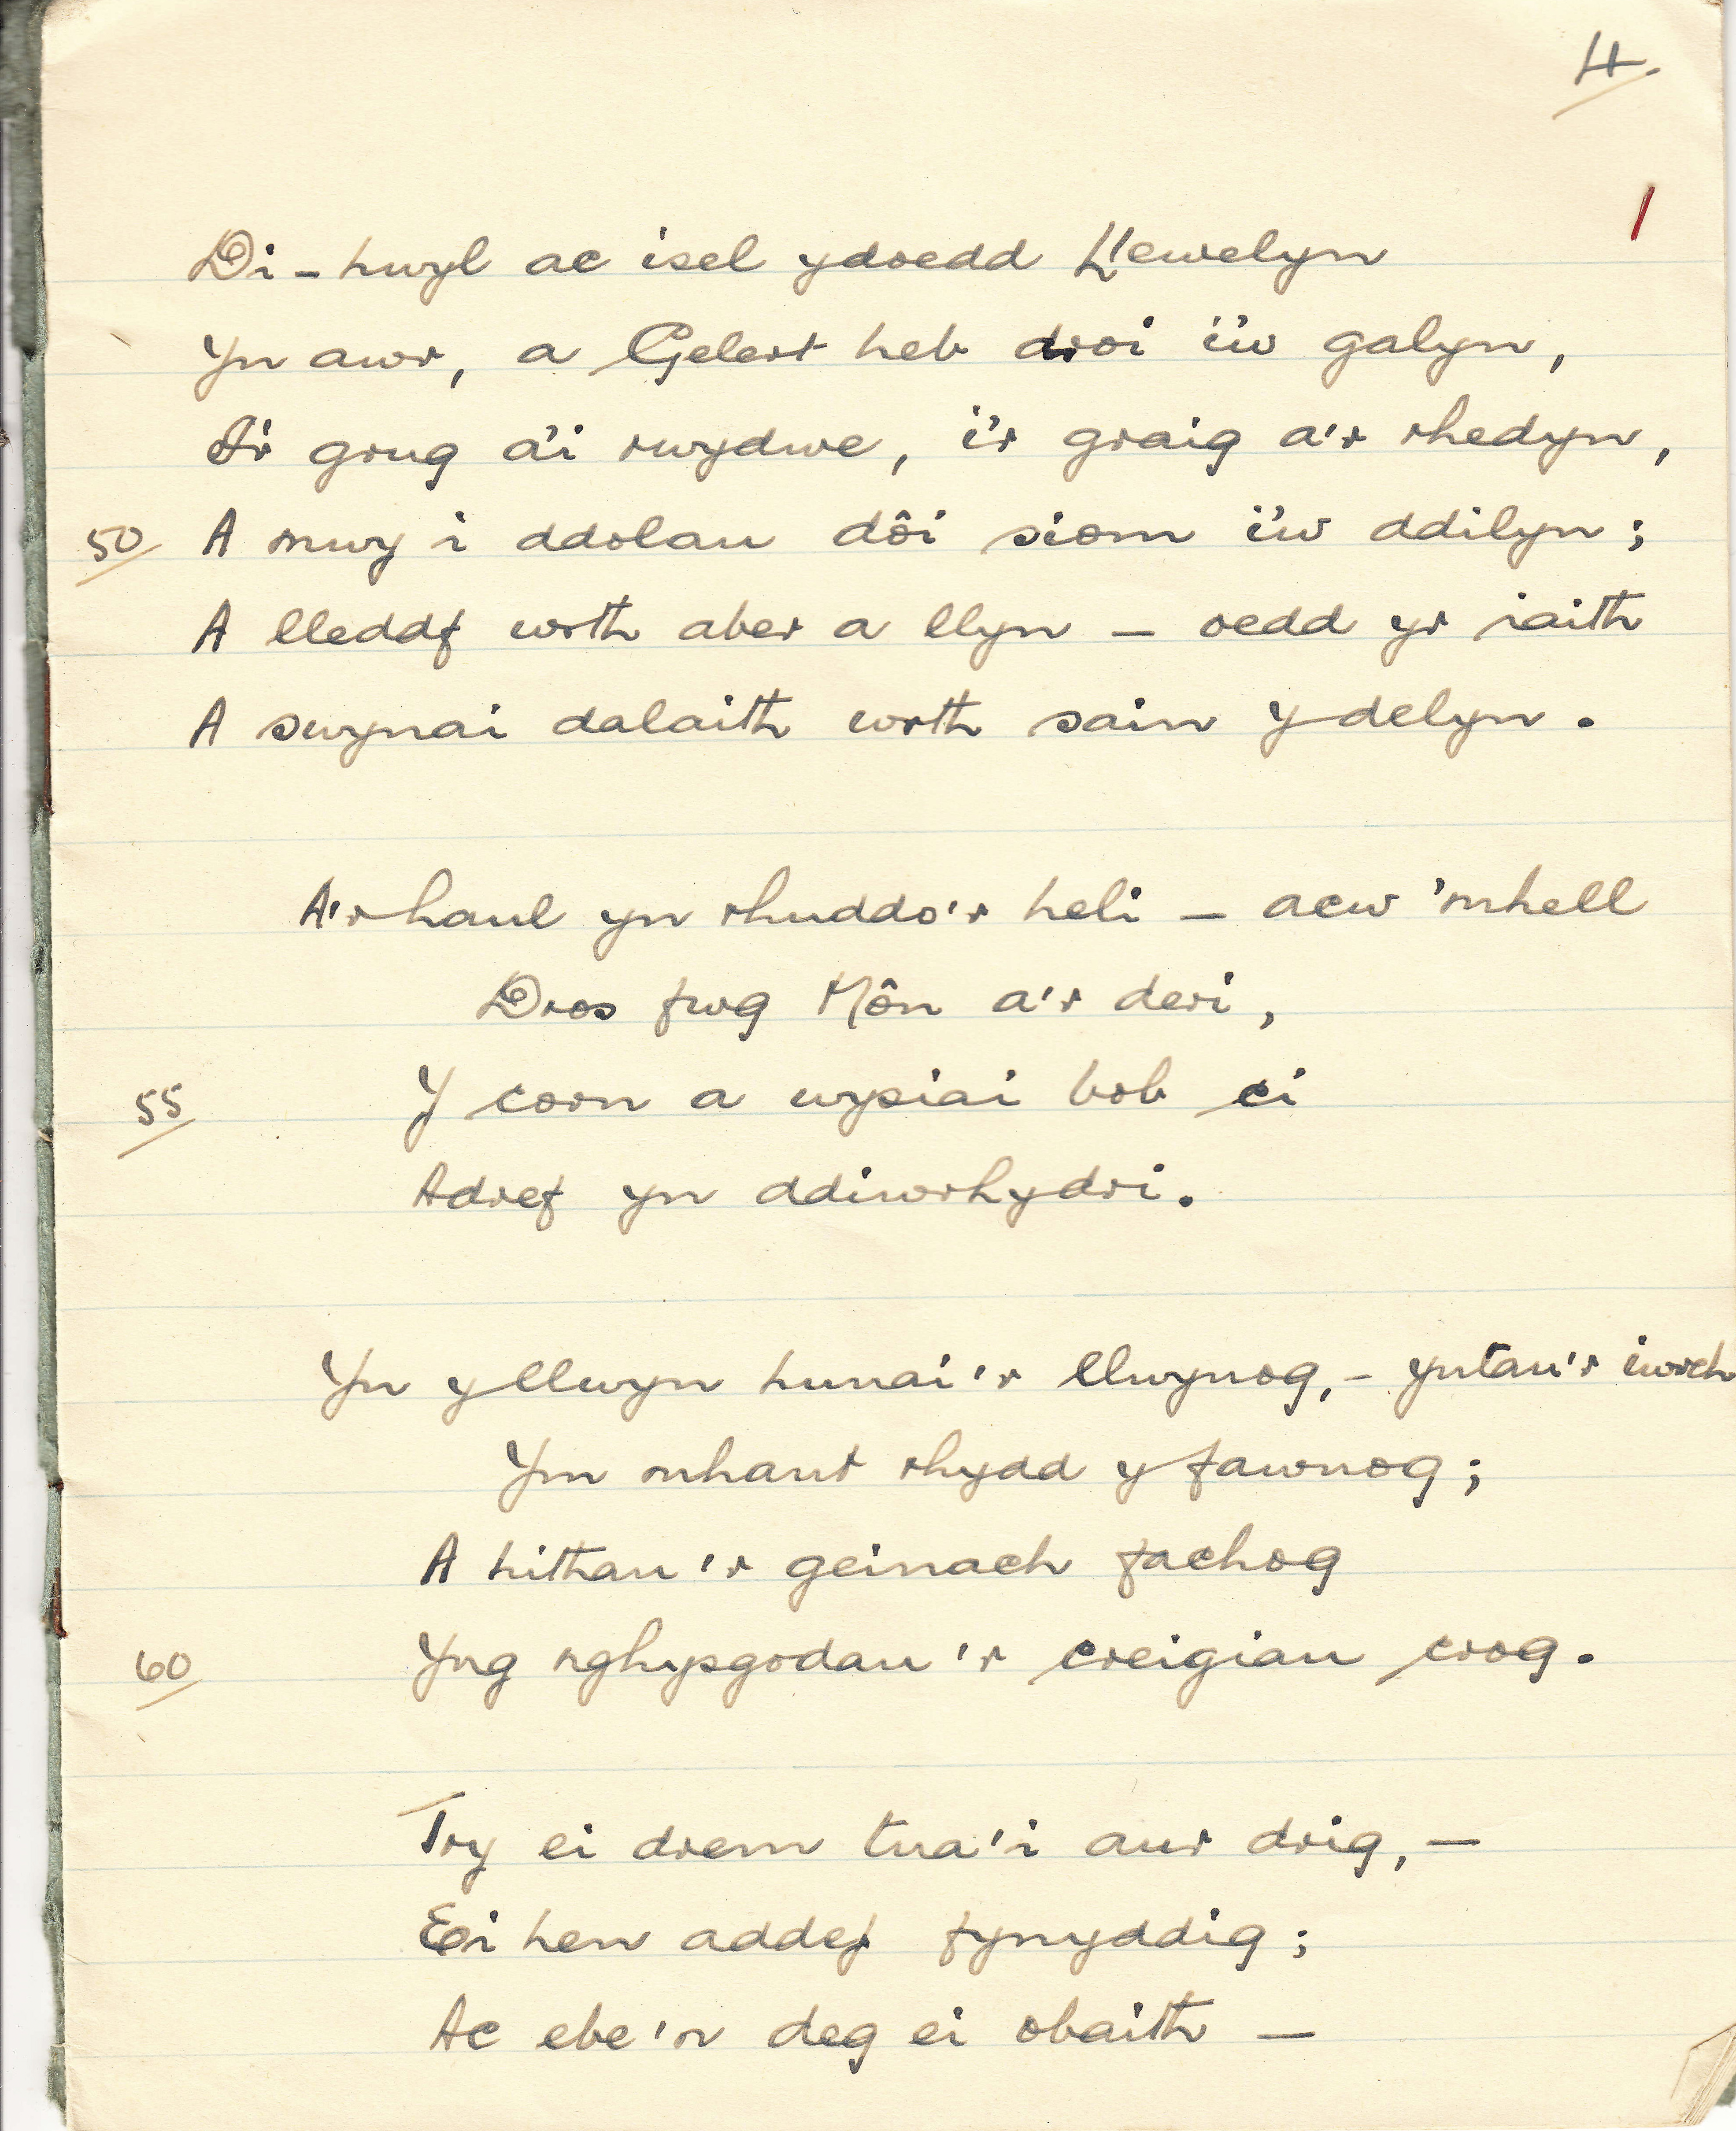 4.
Di-hwyl ac isel ydoedd Llewelyn
Yn awr, a Gelert heb droi i'w galyn,
I'r grug a'i rwydwe, i'r graig a'r rhedyn,
50 A mwy i ddolau dôi siom i'w ddilyn;
A lleddf wrth aber a llyn – oedd yr iaith
A swynai dalaith wrth sain y delyn.
A'r haul yn rhuddo'r heli – acw 'mhell
Dros fwg Môn a'r deri,
55 Y corn a wysiai bob ci
Adref yn ddiwrhydri.
Yn y llwyn hunai'r llwynog, – yntau'r iwrch
Ym mhant rhydd y fawnog;
A hithau'r geinach fachog
60 Yng nghysgodau'r creigiau crog.
Try ei drem tua'i aur drig, –
Ei hen addef fynyddig;
Ac ebe'n deg ei obaith –